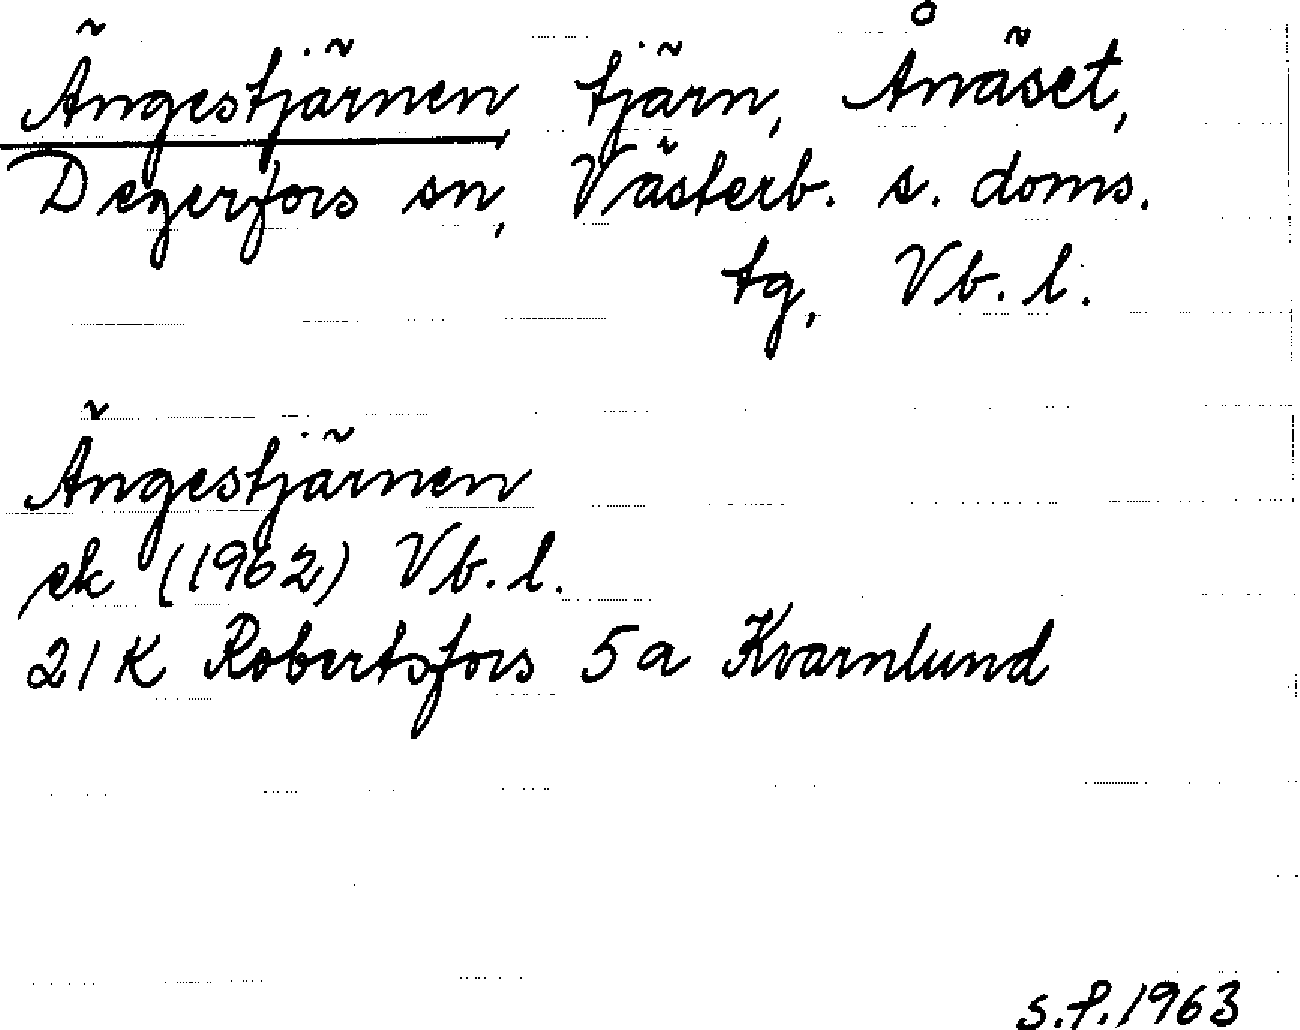 Ängestjärnen tjärn, Ånäset,
Degerfors sn, Västerb. s. doms.
tg, Vb. l.
Ängestjärnen
ek (1962) Vb. l.
21K Robertsfors 5a Kvarnlund
s.f. 1963